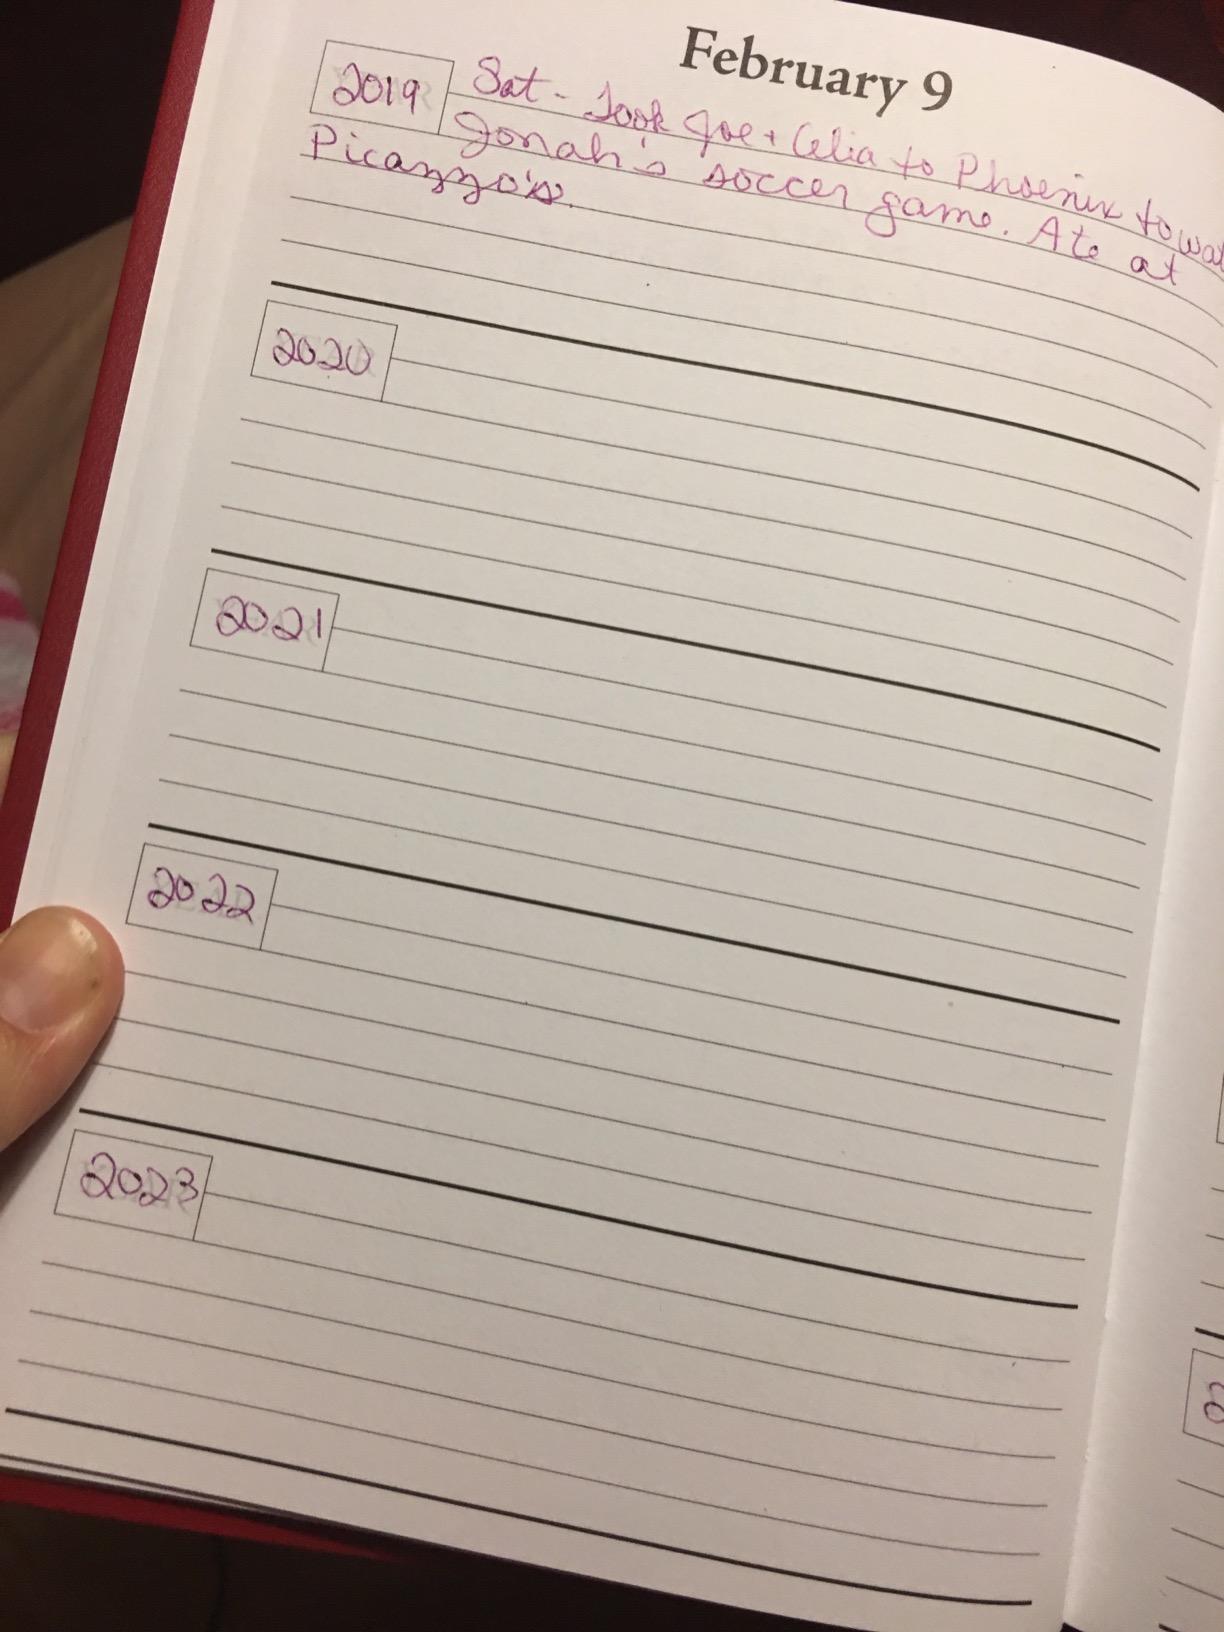 February 9
2019 Sat - Took Joe + Celia to Phoenix to
Jonah's soccer game. Ate at
Picazzo's.
2020
2021
2022
2023